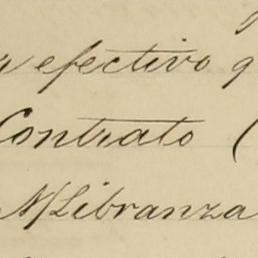 efectivo q
Contrato (
Libranza